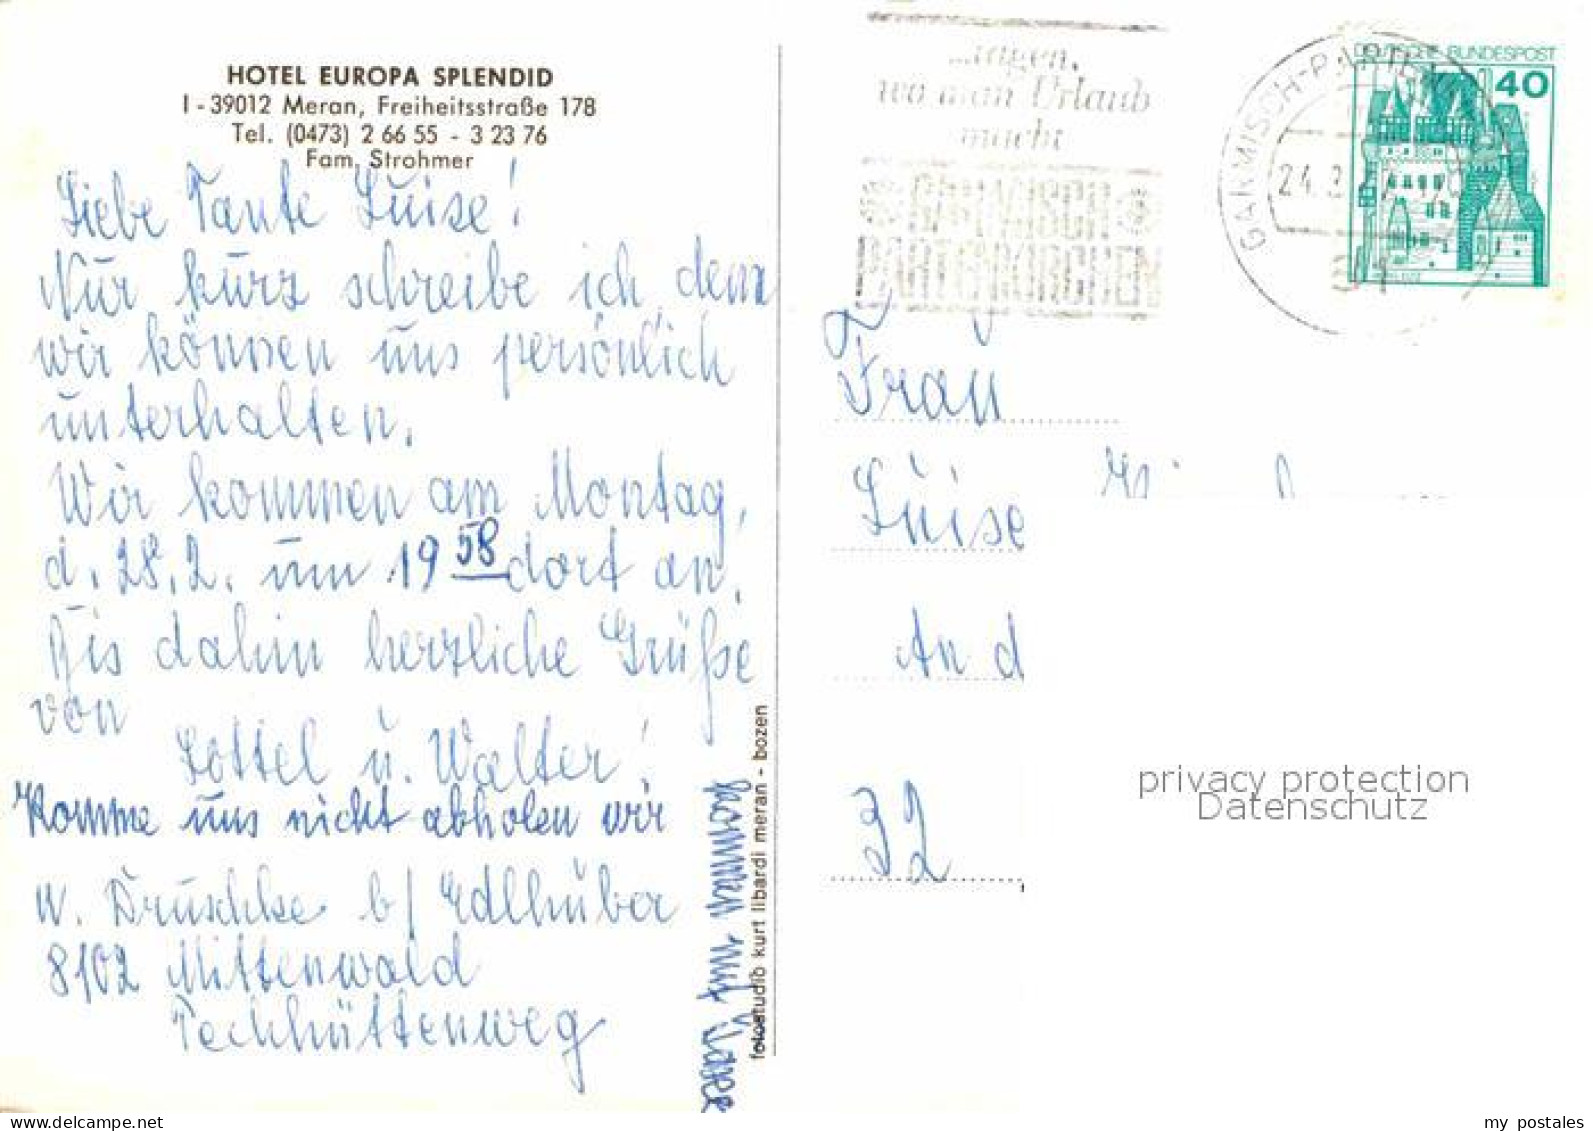 HOTEL EUROPA SPLENDID
I - 39012 Meran, Freiheitsstraße 178
Tel. (0473) 2 66 55 - 3 23 76
Fam. Strohmer
Liebe Tante Luise!
Nur kurz schreibe ich, denn
wir können uns persönlich
unterhalten.
Wir kommen am Montag,
d. 28.2. um 19 58 dort an.
Bis dahin herzliche Grüße
von
Lottel u. Walter!
Komme uns nicht abholen wir
kommen mit Taxe
W. Druschke b/ Edlhuber
8102 Mittenwald
Fotostudio kurt libardi meran - bozen
...sagen,
wo man Urlaub
macht
GARMISCH
PARTENKIRCHEN
GARMISCH-PARTEN
24.2
DEUTSCHE BUNDESPOST
40
Frau
Luise
An d
32
privacy protection
Datenschutz
my postales